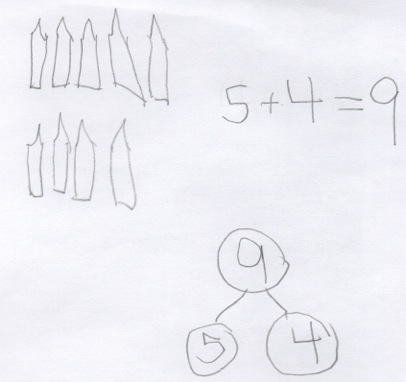 5+4=9
9
5 4